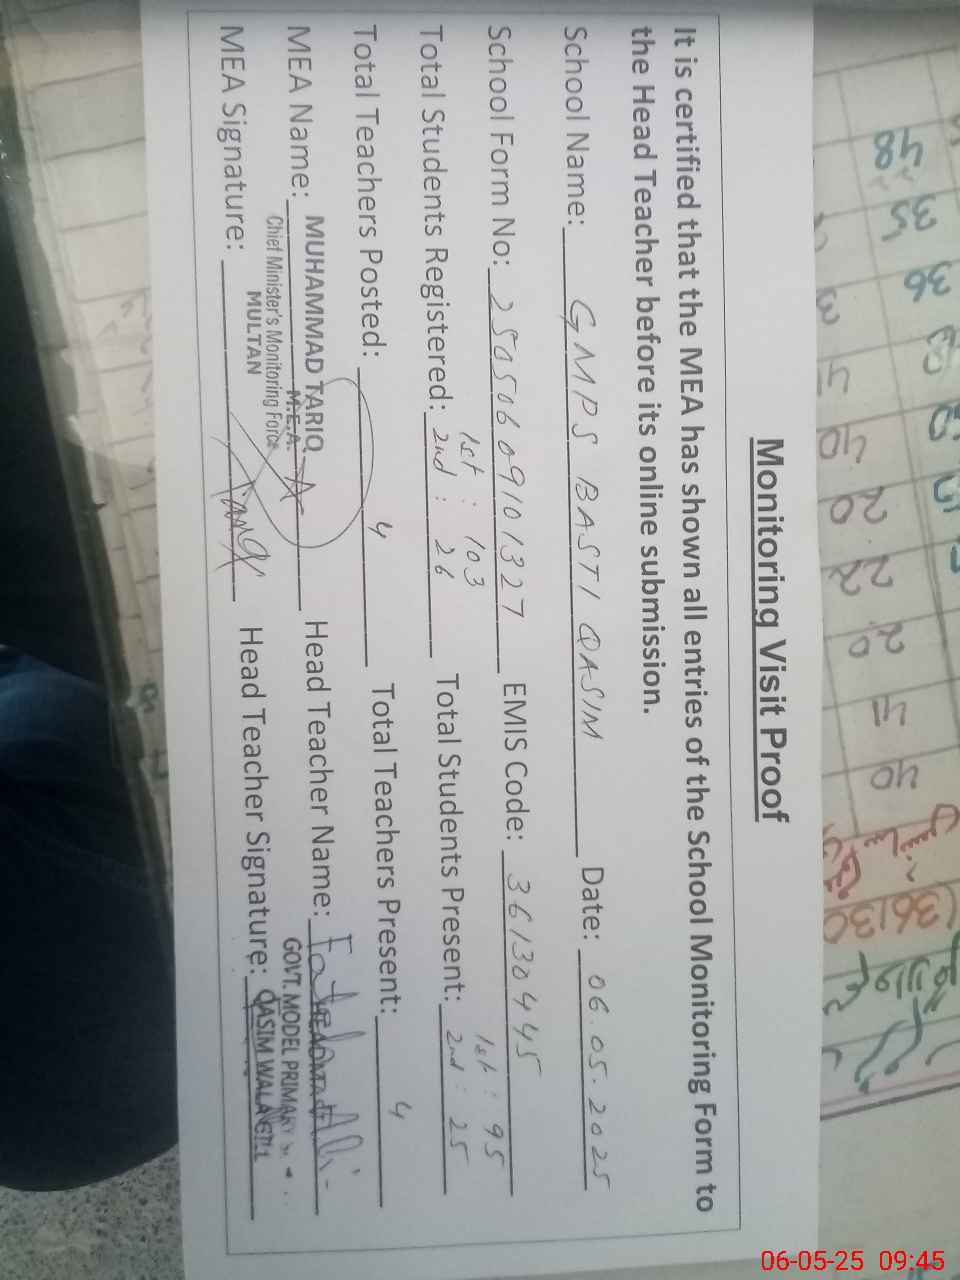 Monitoring Visit Proof
It is certified that the MEA has shown all entries of the School Monitoring Form to
the Head Teacher before its online submission.
School Name: GMPS BASTI QASIM Date: 06.05.2025
School Form No: 25050609101327 EMIS Code: 36130445
Total Students Registered: 1st : 103 2nd : 26 Total Students Present: 1st : 95 2nd : 25
Total Teachers Posted: 4 Total Teachers Present: 4
MEA Name: MUHAMMAD TARIQ Head Teacher Name:
M.E.A.
Chief Minister's Monitoring Force
MULTAN
GOVT. MODEL PRIMARY
MEA Signature: Head Teacher Signature: QASIM WALA
48 35 36
20 22 20 40
(36130
06-05-25 09:45